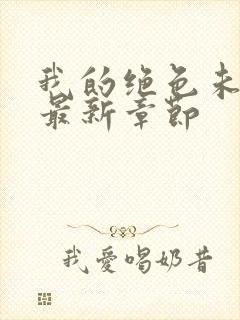 我的绝色未
最新章节
我愛喝奶昔